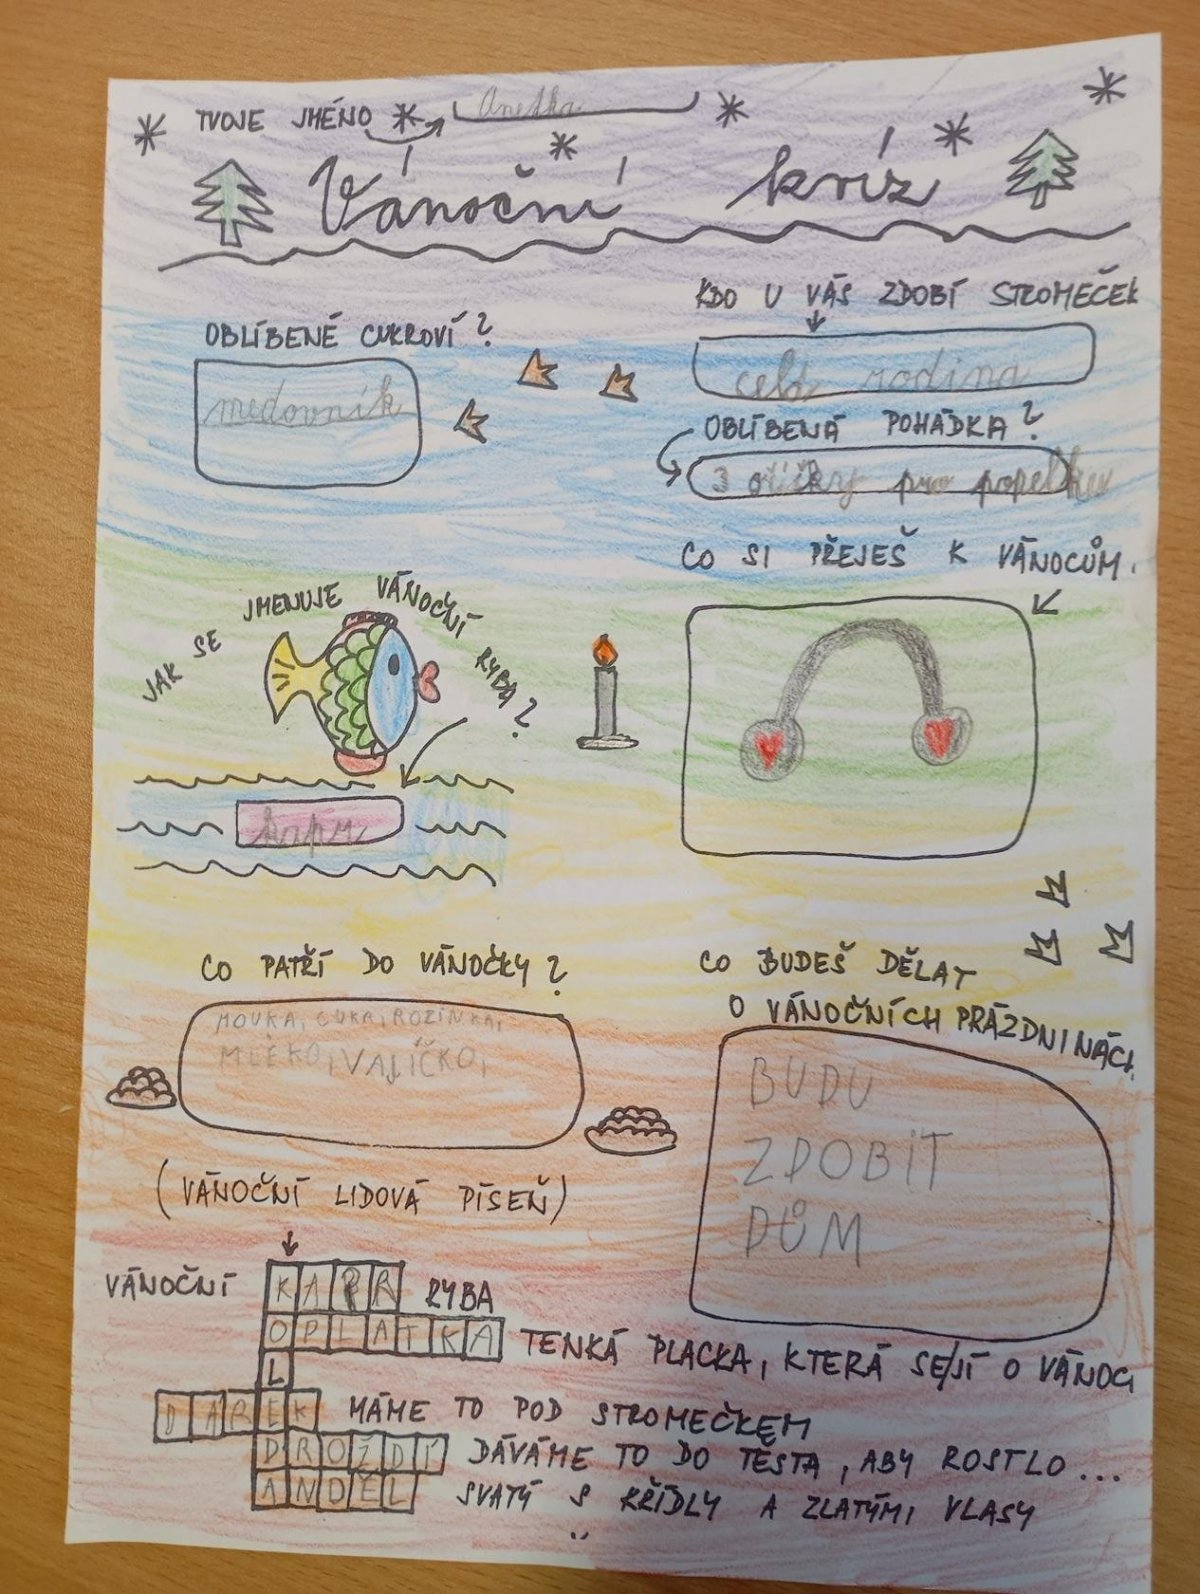 TVOJE JMÉNO Anetka
Vánoční kvíz
OBLÍBENÉ CUKROVÍ?
medovník
KDO U VÁS ZDOBÍ STROMEČEK
celá rodina
OBLÍBENÁ POHÁDKA?
3 oříšky pro popelku
CO SI PŘEJEŠ K VÁNOCŮM.
JAK SE JMENUJE VÁNOČNÍ RYBA?
kapr
CO PATŘÍ DO VÁNOČKY?
MOUKA, CUKR, ROZINKA,
MLÉKO, VAJÍČKO,
CO BUDEŠ DĚLAT
O VÁNOČNÍCH PRÁZDNINÁCH
BUDU
ZDOBIT
DŮM
(VÁNOČNÍ LIDOVÁ PÍSEŇ)
VÁNOČNÍ KAPR RYBA
OPLATKA TENKÁ PLACKA, KTERÁ SE JÍ O VÁNOC
L
DÁREK MÁME TO POD STROMEČKEM
DROŽDÍ DÁVÁME TO DO TĚSTA, ABY ROSTLO...
ANDĚL SVATÝ S KŘÍDLY A ZLATÝMI VLASY